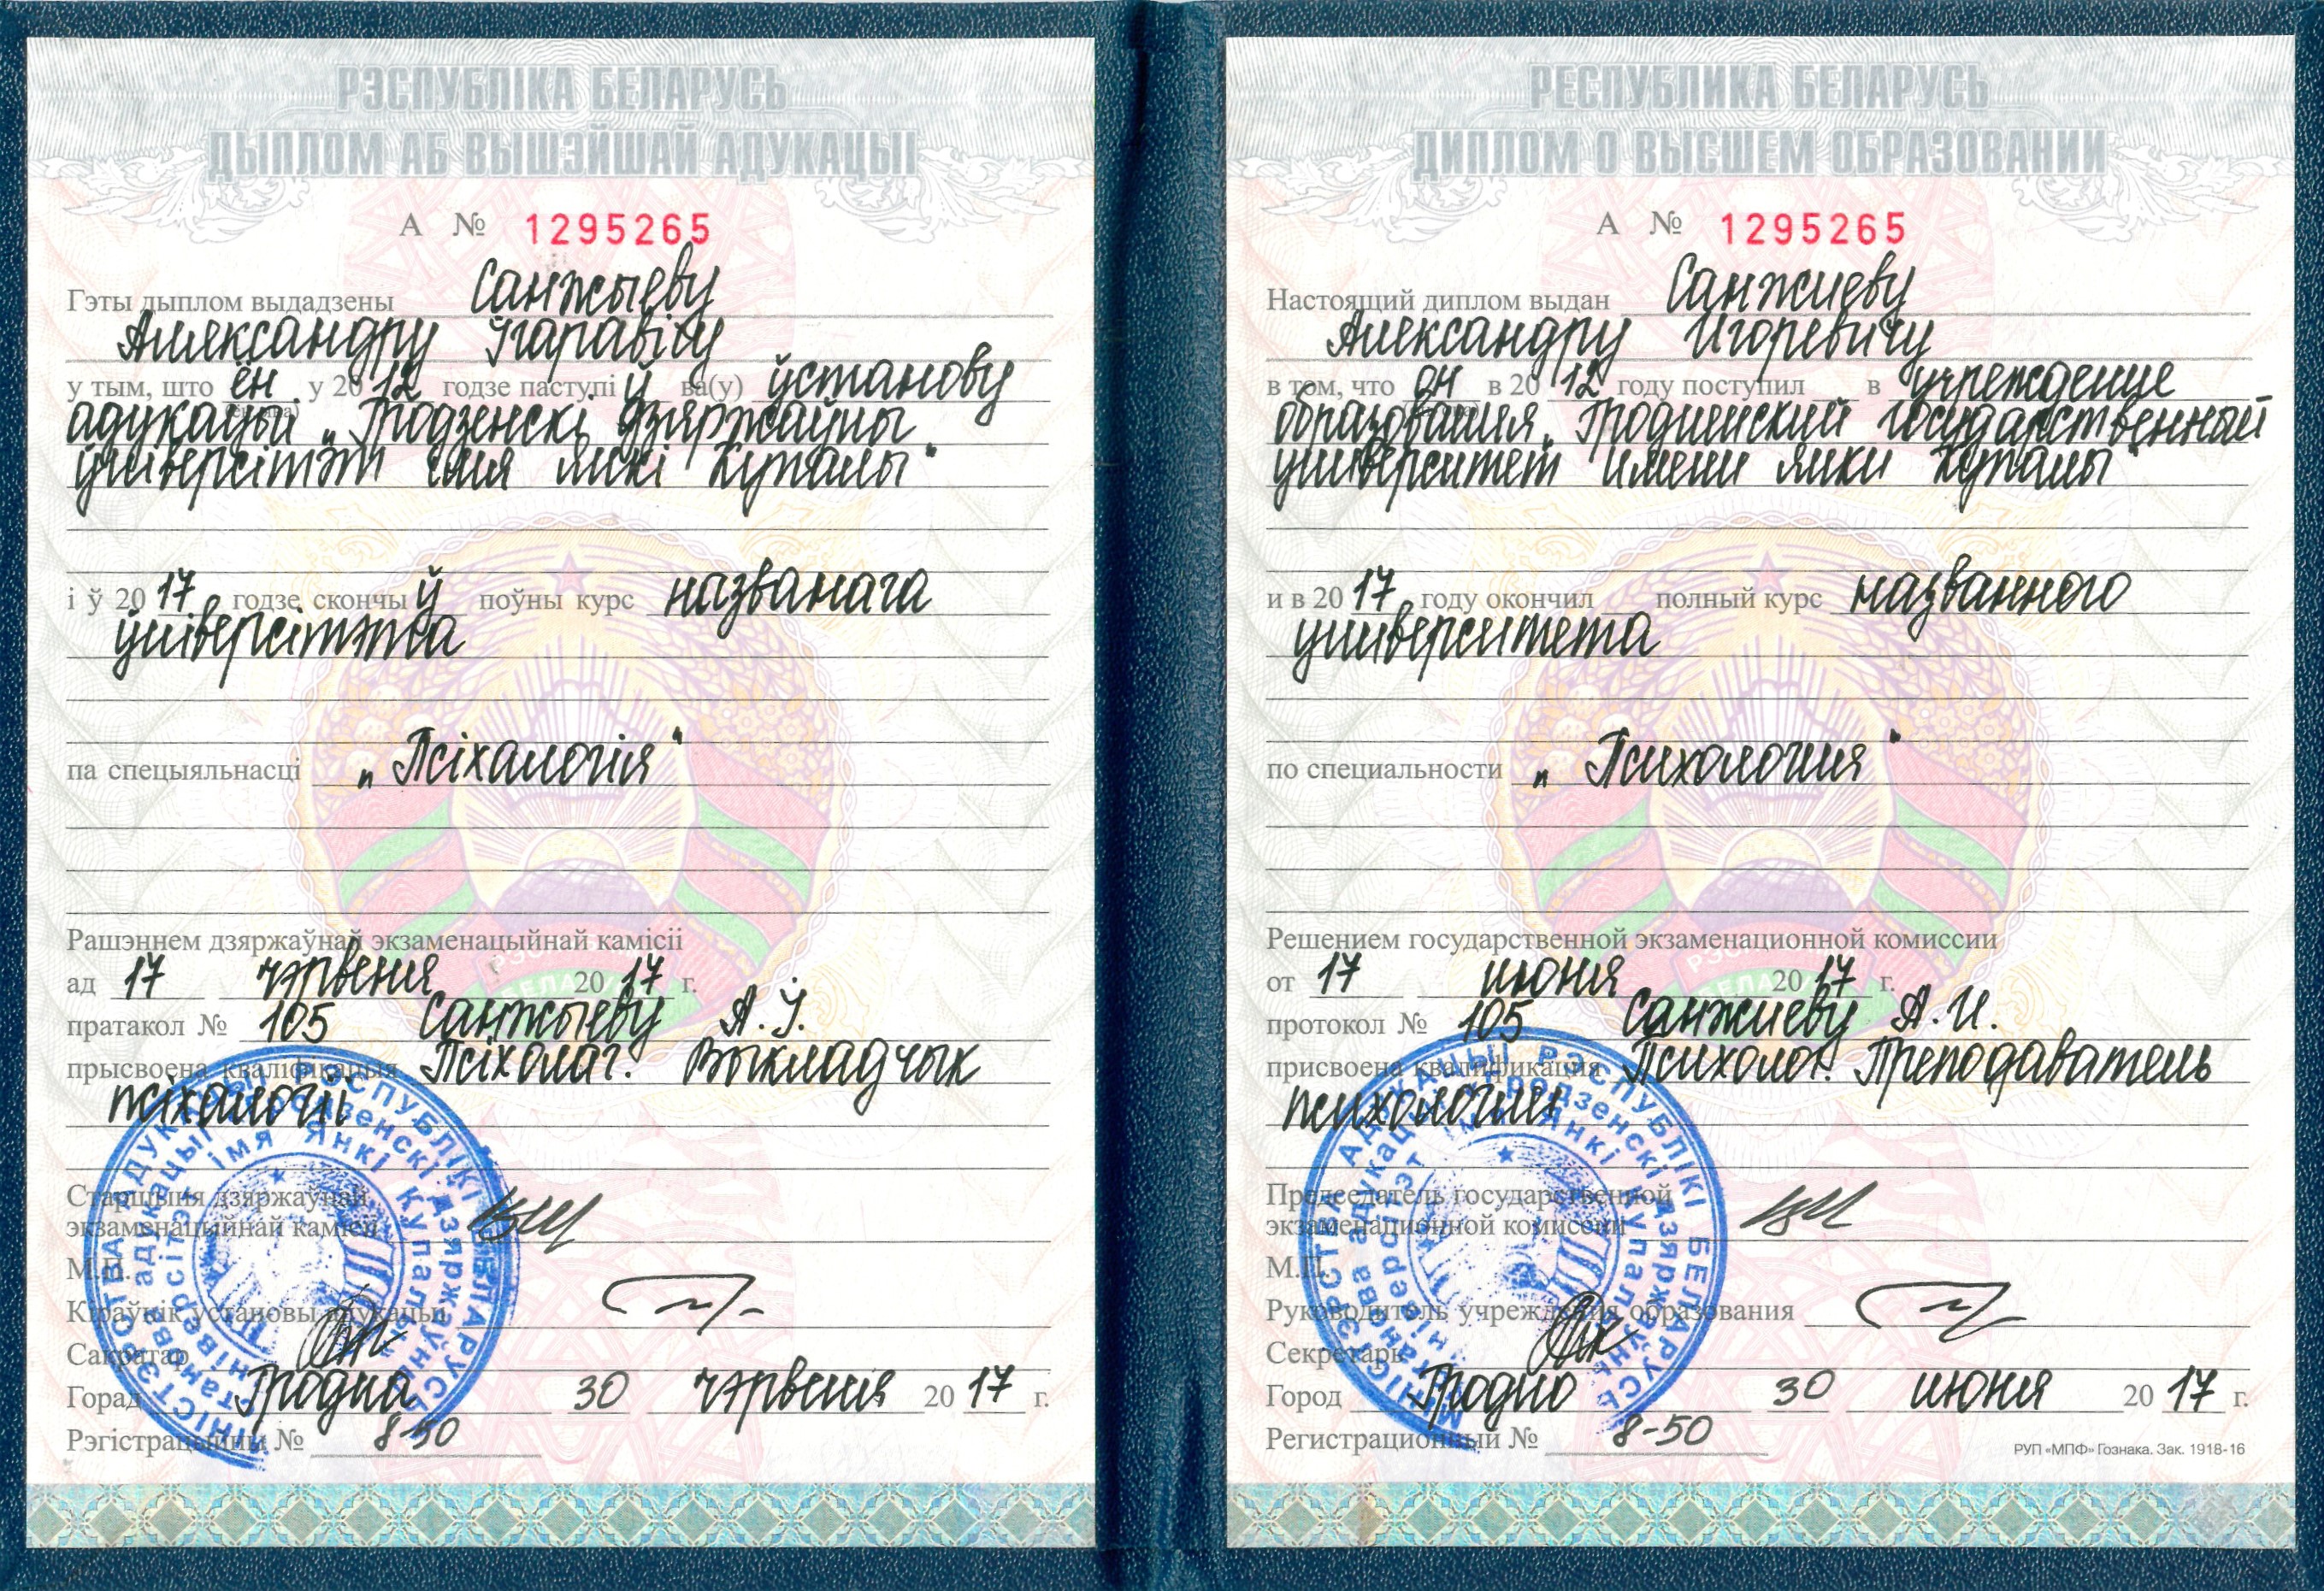 РЭСПУБЛІКА БЕЛАРУСЬ
ДЫПЛОМ АБ ВЫШЭЙШАЙ АДУКАЦЫІ
А № 1295265
Гэты дыплом выдадзены Санжыеву
Аляксандру Ігаравічу
у тым, што ён у 2012 годзе паступіў ва(у) ўстанову
адукацыі „Гродзенскі дзяржаўны
ўніверсітэт імя Янкі Купалы“
і ў 2017 годзе скончыў поўны курс названага
ўніверсітэта
па спецыяльнасці „Псіхалогія“
Рашэннем дзяржаўнай экзаменацыйнай камісіі
ад 17 чэрвеня 2017 г.
пратакол № 105 Санжыеву А.І.
прысвоена кваліфікацыя Псіхолаг. Выкладчык
псіхалогіі
Старшыня дзяржаўнай
экзаменацыйнай камісіі
М.П.
Кіраўнік установы адукацыі
Сакратар
Горад Гродна 30 чэрвеня 2017 г.
Рэгістрацыйны № 8-50
РЕСПУБЛИКА БЕЛАРУСЬ
ДИПЛОМ О ВЫСШЕМ ОБРАЗОВАНИИ
А № 1295265
Настоящий диплом выдан Санжиеву
Александру Игоревичу
в том, что он в 2012 году поступил в учреждение
образования „Гродненский государственный
университет имени Янки Купалы“
и в 2017 году окончил полный курс названного
университета
по специальности „Психология“
Решением государственной экзаменационной комиссии
от 17 июня 2017 г.
протокол № 105 Санжиеву А.И.
присвоена квалификация Психолог. Преподаватель
психологии
Председатель государственной
экзаменационной комиссии
М.П.
Руководитель учреждения образования
Секретарь
Город Гродно 30 июня 2017 г.
Регистрационный № 8-50
РУП «МПФ» Гознака. Зак. 1918-16
МІНІСТЭРСТВА АДУКАЦЫІ РЭСПУБЛІКІ БЕЛАРУСЬ